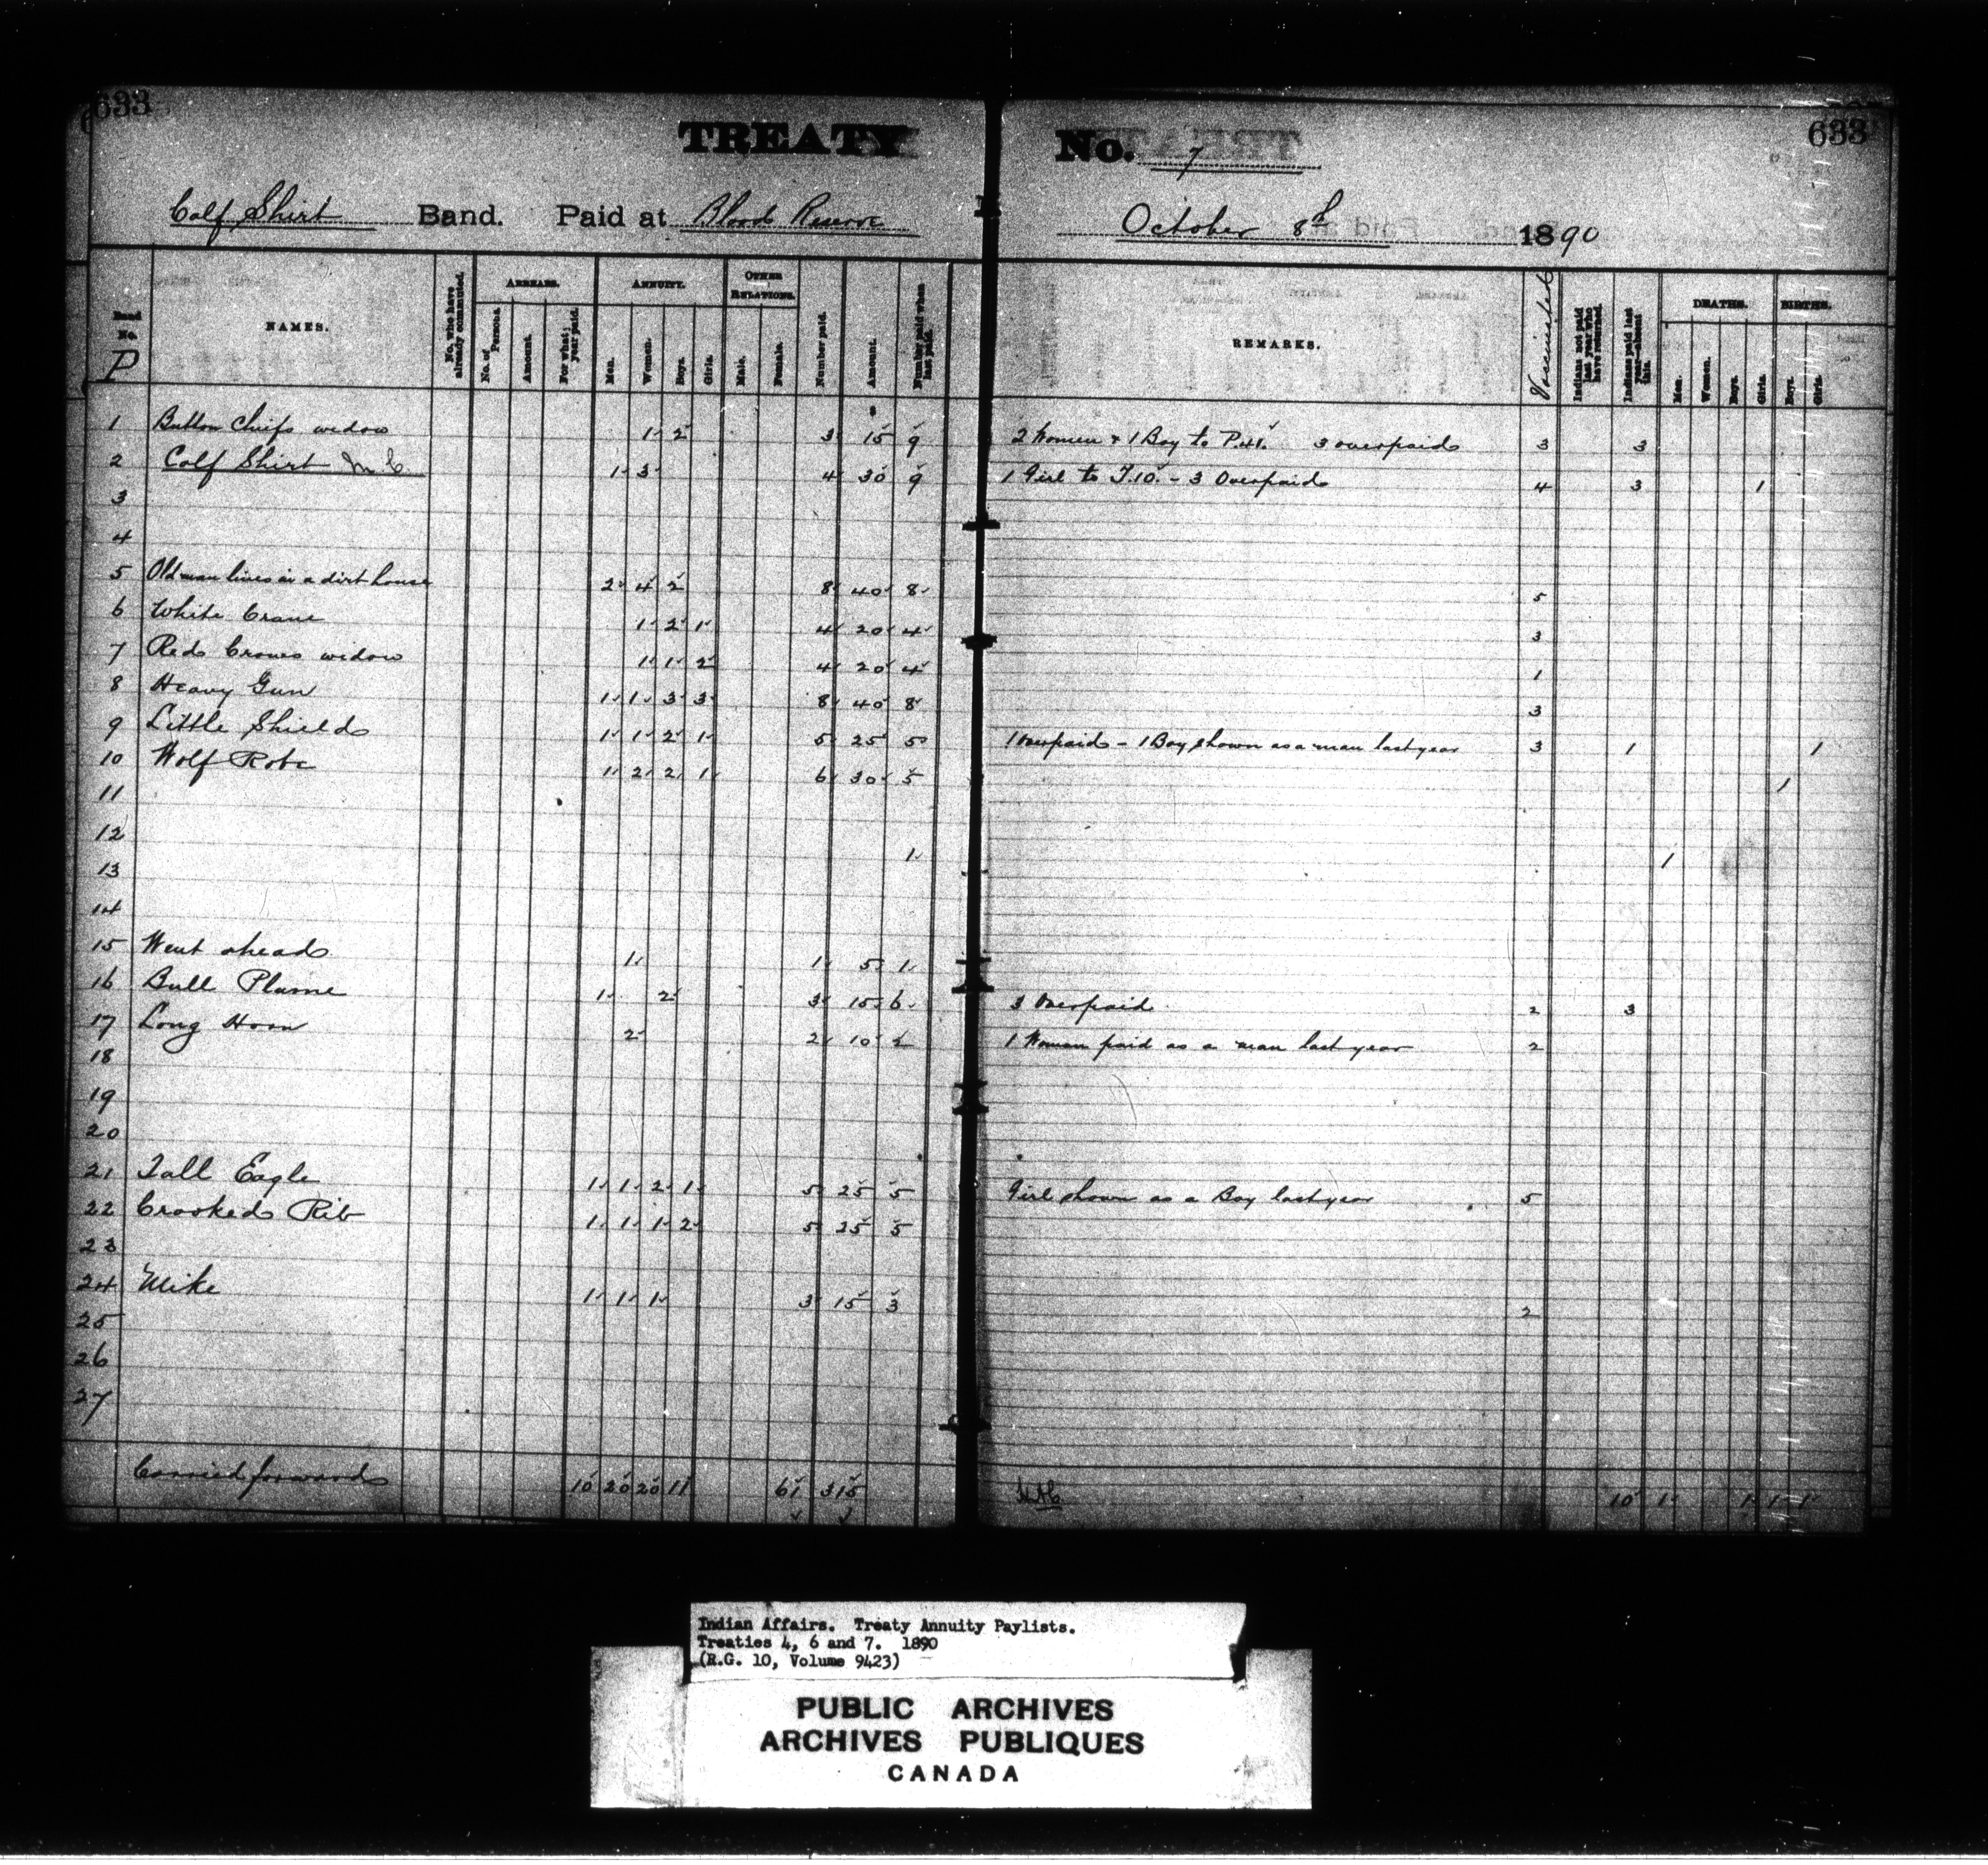 633 633
TREATY No. 7
Calf Shirt Band. Paid at Blood Reserve October 8th 1890
Band No. P NAMES. No. who have already commuted. ARREARS. No. of Persons. Amount. For what year paid. ANNUITY. Men. Women. Boys. Girls. OTHER RELATIONS. Male. Female. Number paid. Amount. Number paid when last paid. REMARKS. Vaccinated Indians not paid last year who have returned. Indians paid last year—absent this. DEATHS. Men. Women. Boys. Girls. BIRTHS. Boys. Girls.
1 Button Chiefs widow 1 2 3 15 9 2 Women & 1 Boy to P.41. 3 overpaid 3 3
2 Calf Shirt M.C. 1 3 4 30 9 1 Girl to T.10. - 3 Overpaid 4 3 1
3
4
5 Old man lives in a dirt house 2 4 2 8 40 8 5
6 White Crane 1 2 1 4 20 4 3
7 Red Crows widow 1 1 2 4 20 4 1
8 Heavy Gun 1 1 3 3 8 40 8 3
9 Little Shield 1 1 2 1 5 25 5 1 Overpaid - 1 Boy shown as a man last year 3 1 1
10 Wolf Robe 1 2 2 1 6 30 5 1
11
12 1 1
13
14
15 Went ahead 1 1 5 1
16 Bull Plume 1 2 3 15 6 3 Overpaid 2 3
17 Long Horn 2 2 10 2 1 Woman paid as a man last year 2
18
19
20
21 Tall Eagle 1 1 2 1 5 25 5 Girl shown as a Boy last year 5
22 Crooked Rib 1 1 1 2 5 25 5
23
24 Mike 1 1 1 3 15 3 2
25
26
27
Carried forward 10 20 20 11 61 315 10 1 1 1 1
Indian Affairs. Treaty Annuity Paylists.
Treaties 4, 6 and 7. 1890
(R.G. 10, Volume 9423)
PUBLIC ARCHIVES
ARCHIVES PUBLIQUES
CANADA